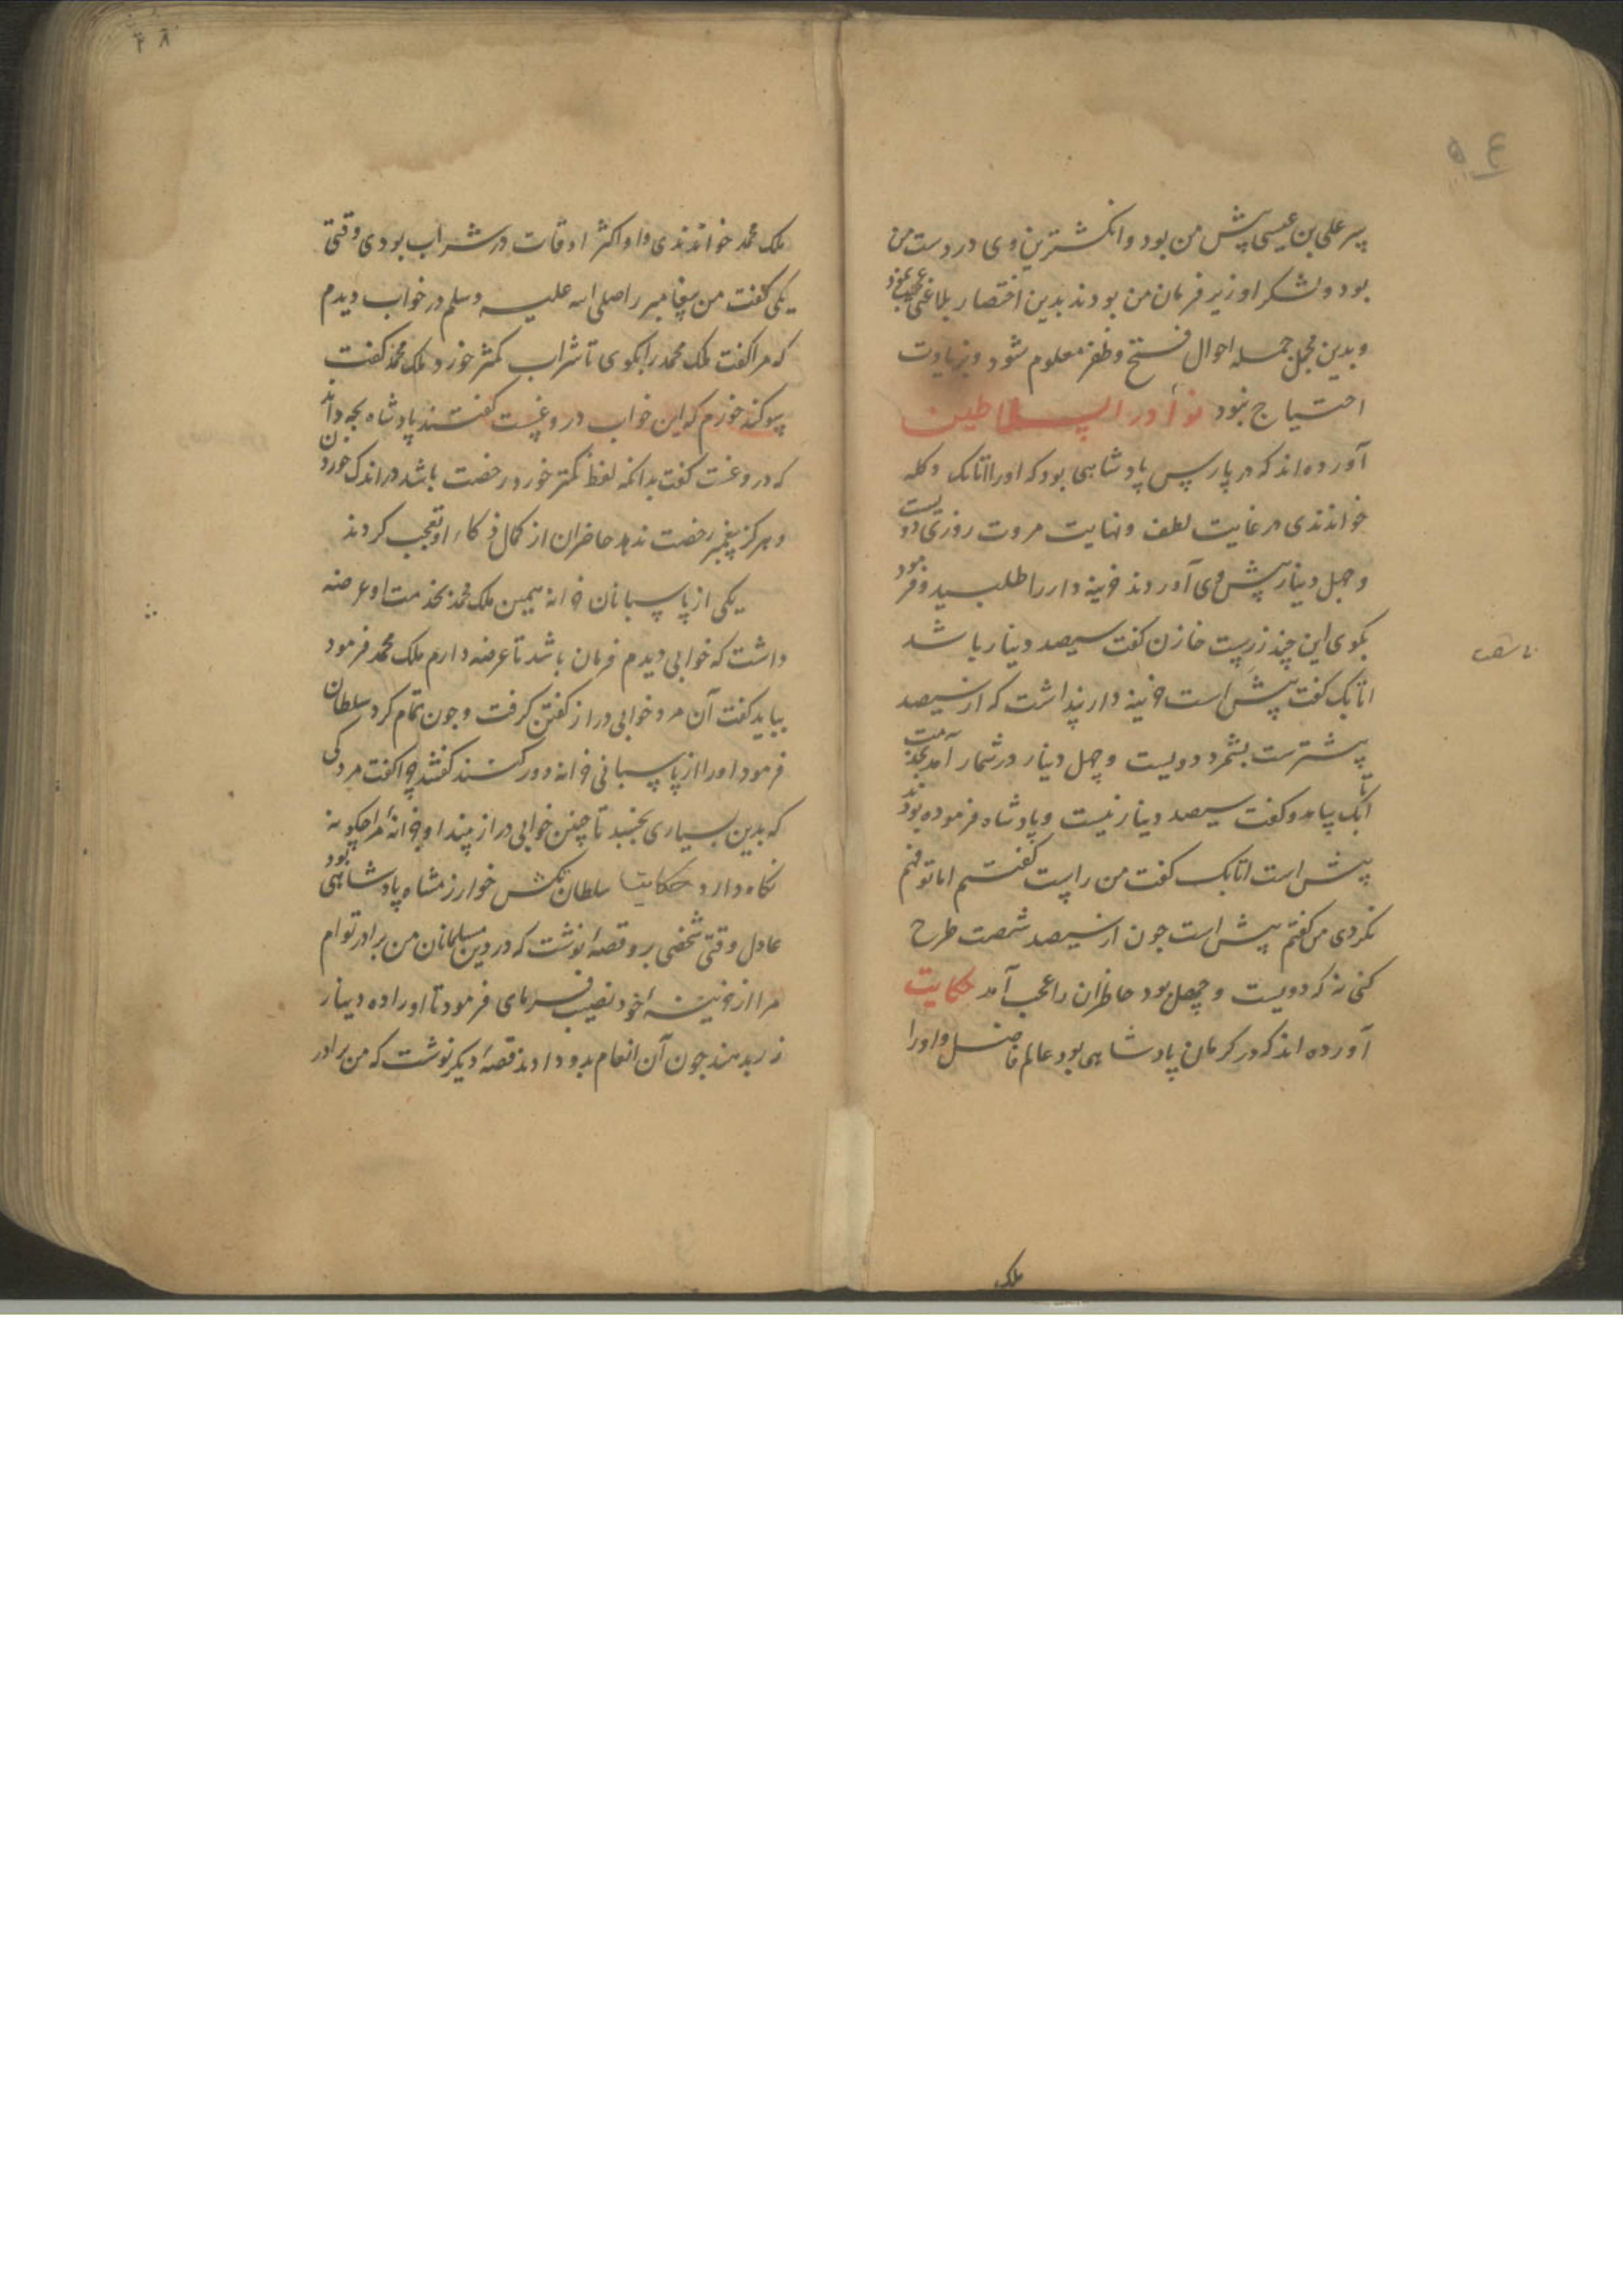 سر علی بن عیسی پیش من بود و انگشترین وی در دست من
بود و لشکر او زیر فرمان من بودند بدین اختصار بلاغتی عجب نمود
و بدین مجمل جمله احوال فتح و ظفر معلوم شود و بزیادت
احتیاج نبود نوادر السلاطین
آورده‌اند که در پارس پادشاهی بود که او را اتابک دکله
خواندندی در غایت لطف و نهایت مروت روزی دویست
و چهل دینار پیش وی آوردند خزینه دار را طلبید و فرمود
بگوی این چند زرست خازن گفت سیصد دینار باشد
اتابک گفت پیش است خزینه دار پنداشت که از سیصد
پیشترست بشمرد دویست و چهل دینار در شمار آمد بخدمت
اتابک بیامد و گفت سیصد دینار نیست و پادشاه فرموده بودند
پیش است اتابک گفت من راست گفتم اما تو فهم
نکردی من گفتم پیش است چون از سیصد شصت طرح
کنی نه که دویست و چهل بود حاظران را عجب آمد حکایت
آورده اند که در کرمان پادشاهی بود عالم فاضل و او را
ملک
ملک محمد خواندندی و او اکثر اوقات در شراب بودی وقتی
یکی گفت من پیغامبر را صلی الله علیه وسلم در خواب دیدم
که مرا گفت ملک محمد را بگوی تا شراب کمتر خورد ملک محمد گفت
سوکند خورم که این خواب دروغیست گفتند پادشاه بچه داند
که دروغست گفت بدانکه لفظ کمتر خورد رخصت باشد در اندک خوردن
و هرگز پیغمبر رخصت ندهد حاضران از کمال ذکاء او تعجب کردند
یکی از پاسبانان خزانه همین ملک محمد بخدمت او عرضه
داشت که خوابی دیدم فرمان باشد تا عرضه دارم ملک محمد فرمود
بباید گفت آن مرد خوابی دراز گفتن گرفت و چون تمام کرد سلطان
فرمود او را از پاسبانی خزانه دور کنند گفتند چرا گفت مردکی
که بدین بسیاری بخسبد تا چنین خوابی دراز بیند او خزانهٔ مرا چگونه
نگاه دارد حکایت سلطان تکش خوارزمشاه پادشاهی بود
عادل وقتی شخصی برو قصهٔ نوشت که در دین مسلمانان من برادر توام
مرا از خزینهٔ خود نصیب فرمای فرمود تا او را ده دینار
زر بدهند چون آن انعام بدو دادند قصهٔ دیگر نوشت که من برادر